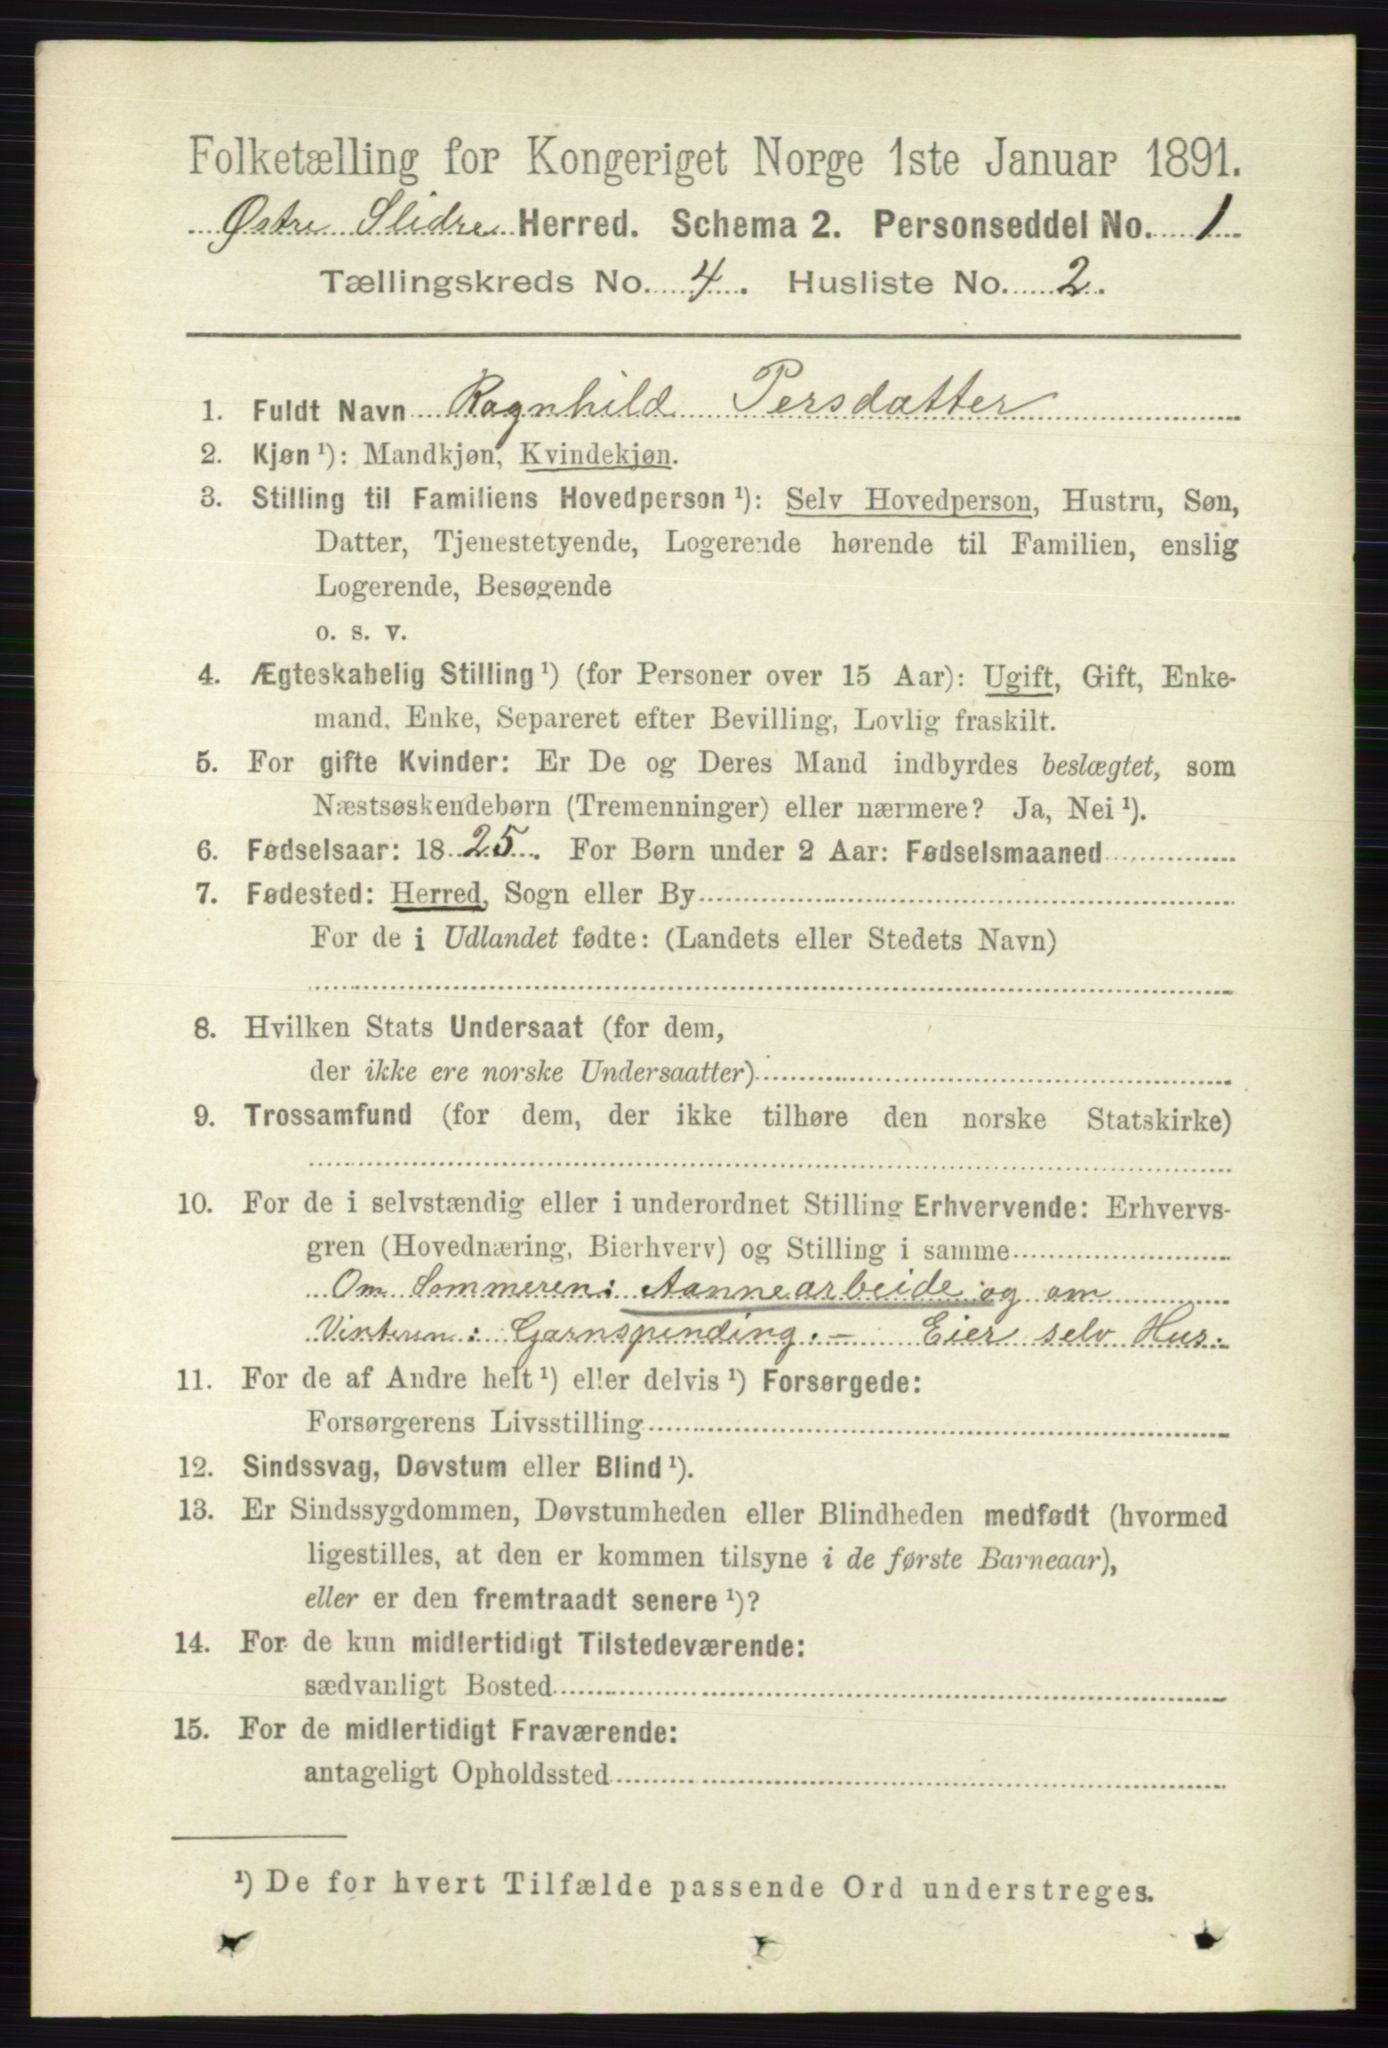 Folketælling for Kongeriget Norge 1ste Januar 1891.
Østre Slidre Herred. Schema 2. Personseddel No. 1
Tællingskreds No. 4. Husliste No. 2.
1. Fuldt Navn Ragnhild Persdatter
2. Kjøn ¹): Mandkjøn, Kvindekjøn.
3. Stilling til Familiens Hovedperson ¹): Selv Hovedperson, Hustru, Søn,
Datter, Tjenestetyende, Logerende hørende til Familien, enslig
Logerende, Besøgende
o. s. v.
4. Ægteskabelig Stilling ¹) (for Personer over 15 Aar): Ugift, Gift, Enke-
mand, Enke, Separeret efter Bevilling, Lovlig fraskilt.
5. For gifte Kvinder: Er De og Deres Mand indbyrdes beslægtet, som
Næstsøskendebørn (Tremenninger) eller nærmere? Ja, Nei ¹).
6. Fødselsaar: 1825. For Børn under 2 Aar: Fødselsmaaned
7. Fødested: Herred, Sogn eller By
For de i Udlandet fødte: (Landets eller Stedets Navn)
8. Hvilken Stats Undersaat (for dem,
der ikke ere norske Undersaatter)
9. Trossamfund (for dem, der ikke tilhøre den norske Statskirke)
10. For de i selvstændig eller i underordnet Stilling Erhvervende: Erhvervs-
gren (Hovednæring, Bierhverv) og Stilling i samme
Om Sommeren: Aannearbeide og om
Vinteren: Garnspinding. — Eier selv Hus.
11. For de af Andre helt ¹) eller delvis ¹) Forsørgede:
Forsørgerens Livsstilling
12. Sindssvag, Døvstum eller Blind ¹).
13. Er Sindssygdommen, Døvstumheden eller Blindheden medfødt (hvormed
ligestilles, at den er kommen tilsyne i de første Barneaar),
eller er den fremtraadt senere ¹)?
14. For de kun midlertidigt Tilstedeværende:
sædvanligt Bosted
15. For de midlertidigt Fraværende:
antageligt Opholdssted
¹) De for hvert Tilfælde passende Ord understreges.